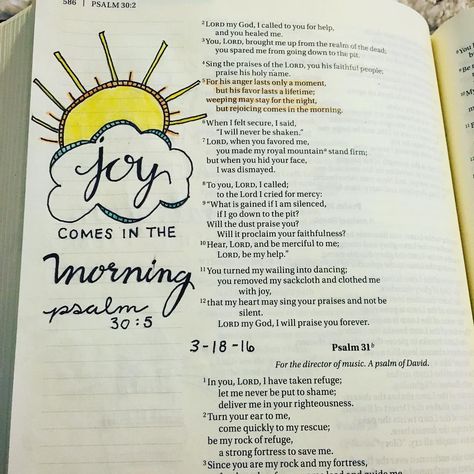 586 | PSALM 30:2
joy
COMES IN THE
morning
psalm
30:5
2 LORD my God, I called to you for help,
and you healed me.
3 You, LORD, brought me up from the realm of the dead;
you spared me from going down to the pit.
4 Sing the praises of the LORD, you his faithful people;
praise his holy name.
5 For his anger lasts only a moment,
but his favor lasts a lifetime;
weeping may stay for the night,
but rejoicing comes in the morning.
6 When I felt secure, I said,
"I will never be shaken."
7 LORD, when you favored me,
you made my royal mountain a stand firm;
but when you hid your face,
I was dismayed.
8 To you, LORD, I called;
to the Lord I cried for mercy:
9 "What is gained if I am silenced,
if I go down to the pit?
Will the dust praise you?
Will it proclaim your faithfulness?
10 Hear, LORD, and be merciful to me;
LORD, be my help."
11 You turned my wailing into dancing;
you removed my sackcloth and clothed me
with joy,
12 that my heart may sing your praises and not be
silent.
LORD my God, I will praise you forever.
3-18-16
Psalm 31 b
For the director of music. A psalm of David.
1 In you, LORD, I have taken refuge;
let me never be put to shame;
deliver me in your righteousness.
2 Turn your ear to me,
come quickly to my rescue;
be my rock of refuge,
a strong fortress to save me.
3 Since you are my rock and my fortress,